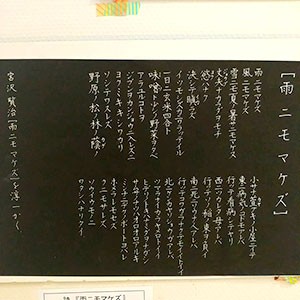 「雨ニモマケズ」
雨ニモマケズ
風ニモマケズ
雪ニモ夏ノ暑サニモマケヌ
丈夫ナカラダヲモチ
慾ハナク
決シテ瞋ラズ
イツモシヅカニワラッテヰル
一日ニ玄米四合ト
味噌ト少シノ野菜ヲタベ
アラユルコトヲ
ジブンヲカンジョウニ入レズニ
ヨクミキキシワカリ
ソシテワスレズ
野原ノ松ノ林ノ蔭ノ
小サナ萱ブキノ小屋ニヰテ
東ニ病気ノコドモアレバ
行ッテ看病シテヤリ
西ニツカレタ母アレバ
行ッテソノ稲ノ束ヲ負ヒ
南ニ死ニサウナ人アレバ
行ッテコハガラナクテモイヽトイヒ
北ニケンクヮヤソショウガアレバ
ツマラナイカラヤメロトイヒ
ヒデリノトキハナミダヲナガシ
サムサノナツハオロオロアルキ
ミンナニデクノボートヨバレ
ホメラレモセズ
クニモサレズ
ソウイウモノニ
ワタシハナリタイ
宮沢賢治「雨ニモマケズ」を淳一かく
詩 『雨ニモマケズ』